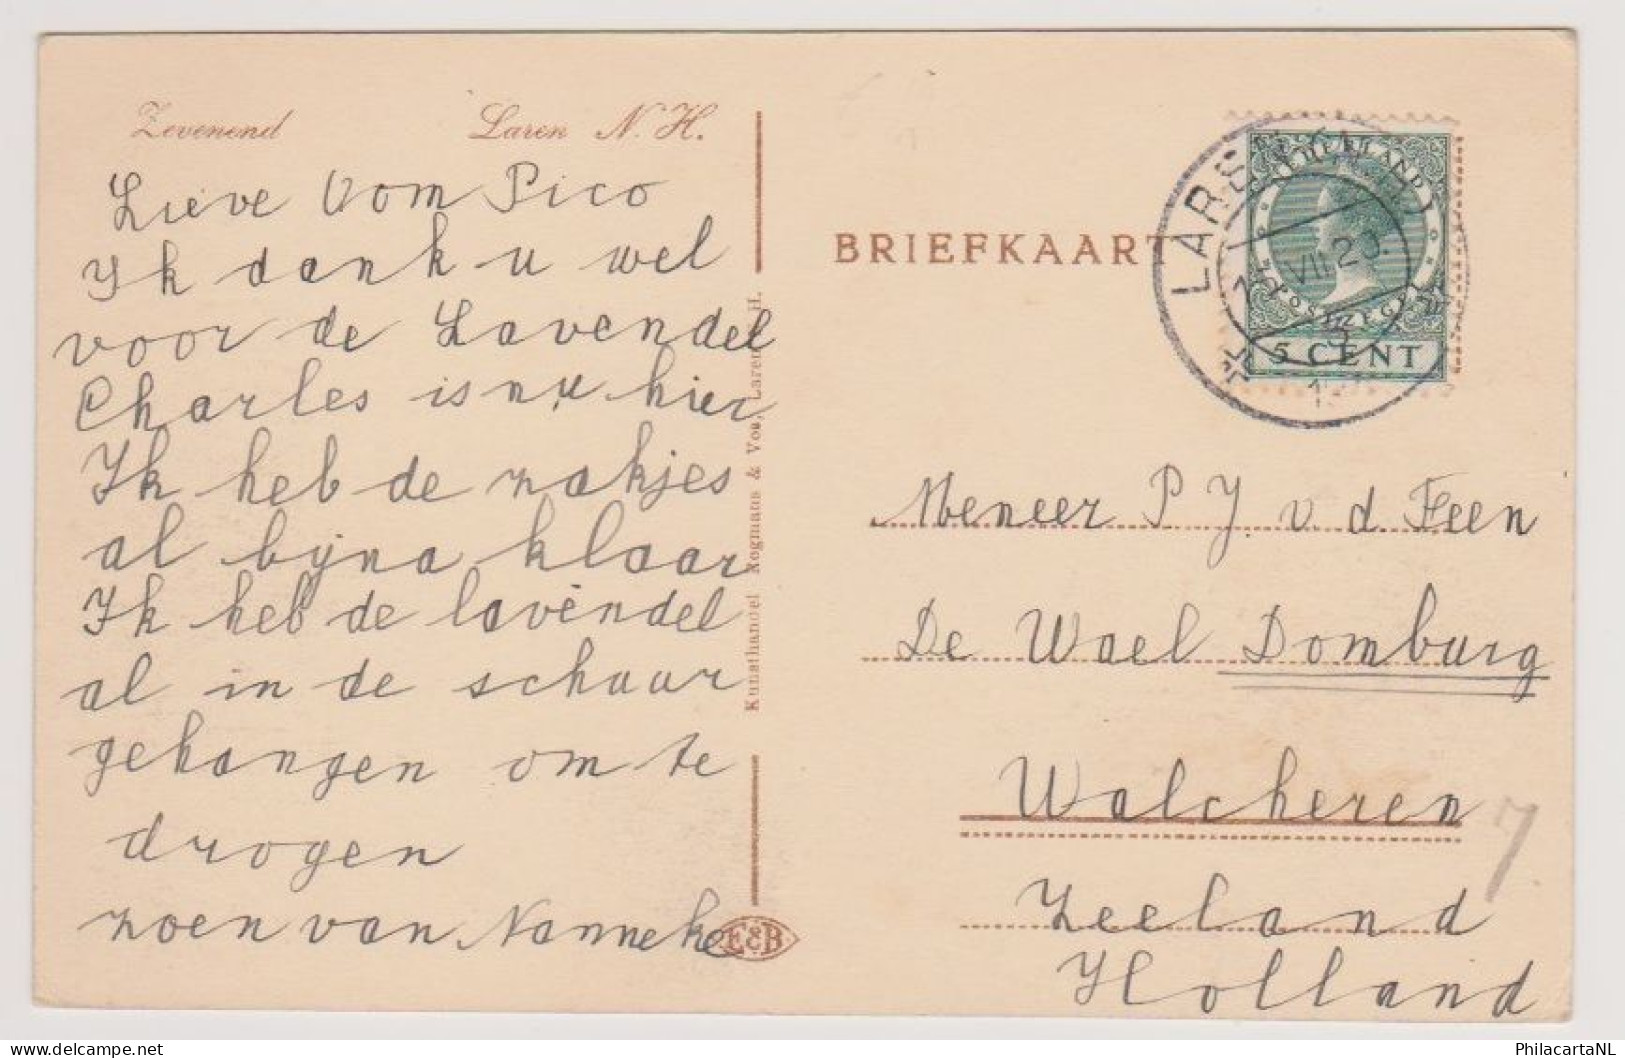 Zevenend Laren N. H.
Lieve Oom Pico
Ik dank u wel
voor de Lavendel
Charles is nu hier
Ik heb de zakjes
al byna klaar
Ik heb de lavéndel
al in de schuur
gehangen om te
drogen
zoen van Nanneke
Kunsthandel Nogmans & Vos, Laren N. H.
E&B
BRIEFKAART
NEDERLAND
POSTZEGEL
5 CENT
Meneer P J. v d. Feen
De Wael Domburg
Walcheren
7
Zeeland
Holland
PhilacartaNL